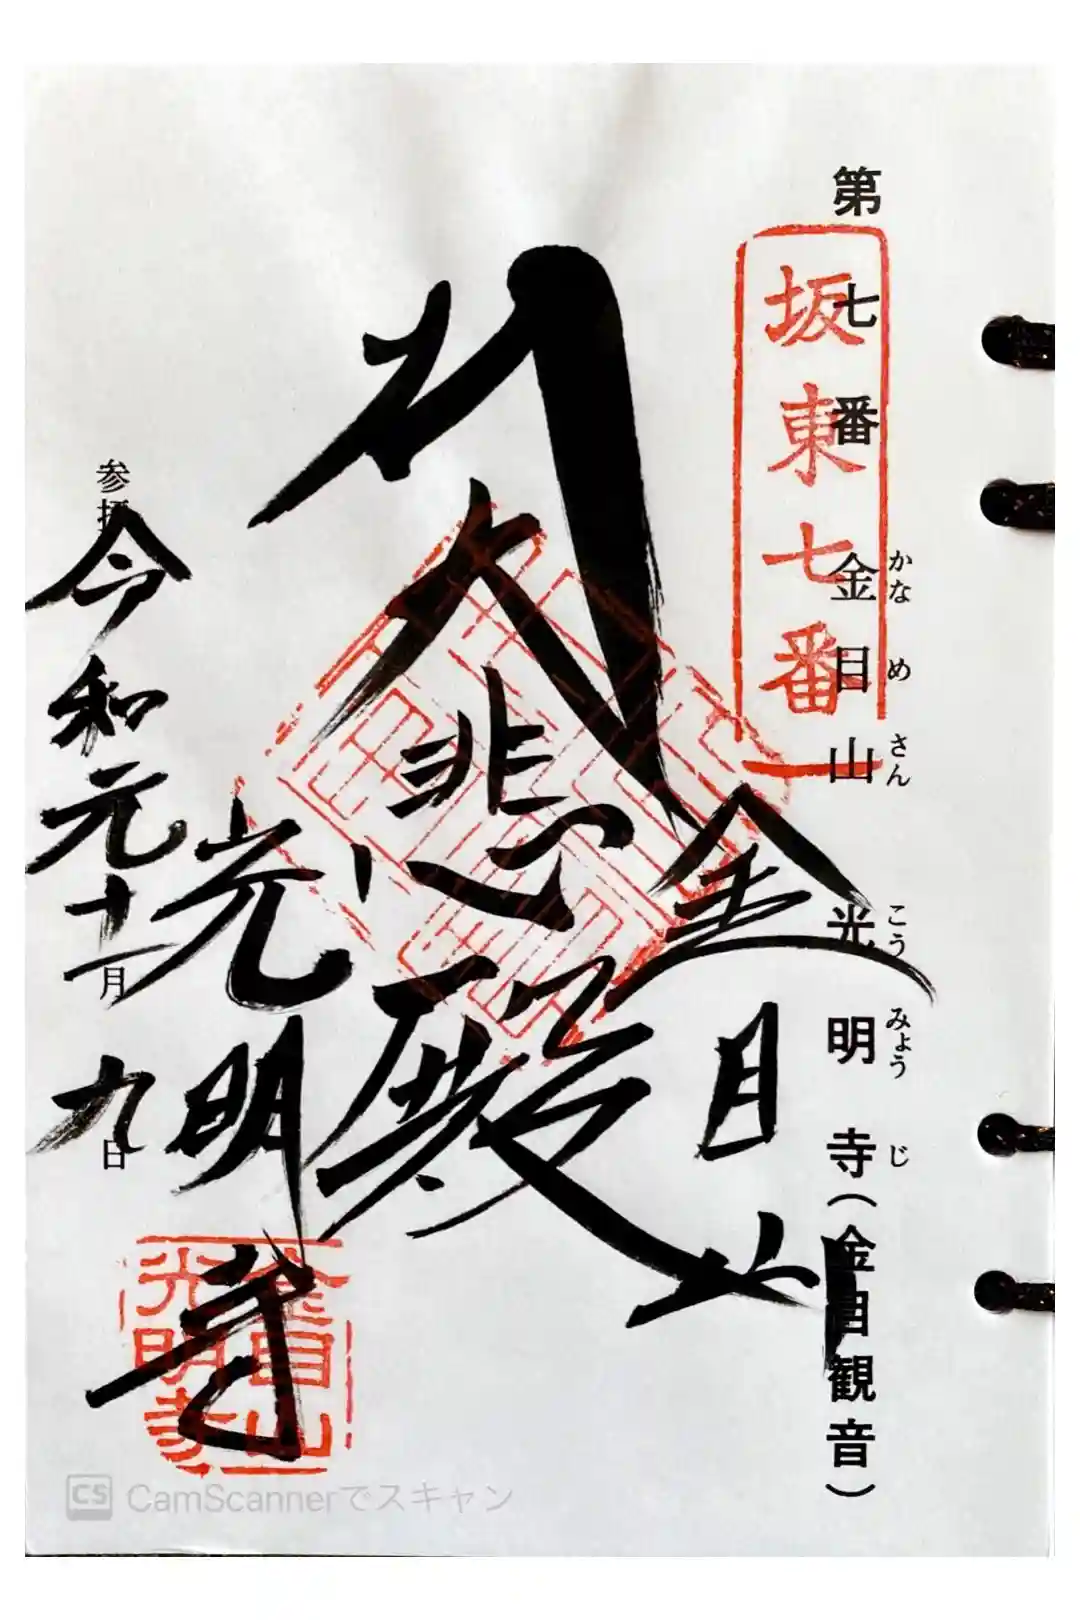 第七番 金目山 光明寺(金目観音)
かなめさん こうみょうじ
坂東七番
金目山
大悲殿
光明寺
参拝
令和元十一月九日
金目山
光明寺
CS CamScannerでスキャン